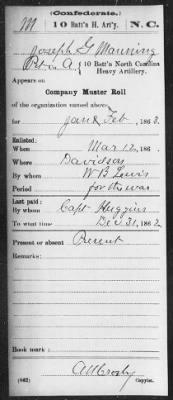 (Confederate.)
M 10 Batt'n H. Art'y. N.C.
Joseph G Manning
Pvt. Co. A, 10 Batt'n North Carolina
Heavy Artillery.
Appears on
Company Muster Roll
of the organization named above
for Jan & Feb, 1863.
Enlisted:
When Mar 12, 186
Where Davidson
By whom W B Lewis
Period for the war
Last paid:
By whom Capt Huggins
To what time Dec 31, 1862
Present or absent Present
Remarks:
Book mark:
(642) Copyist.